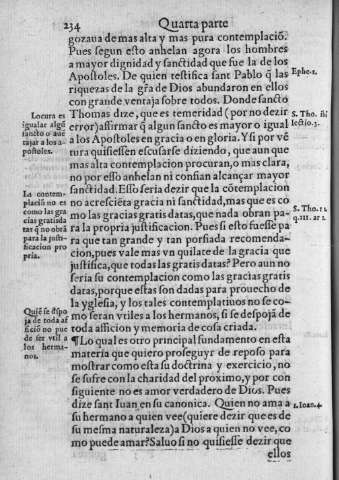 234
Quarta parte
gozaua de mas alta y mas pura contemplaciõ.
Pues segun esto anhelan agora los hombres
a mayor dignidad y sanctidad que fue la de los
Apostoles. De quien testifica sant Pablo q̃ las
riquezas de la gr̃a de Dios abundaron en ellos
con grande ventaja sobre todos. Donde sancto
Thomas dize, que es temeridad (por no dezir
error) affirmar q̃ algun sancto es mayor o igual
a los Apostoles en gracia o en gloria. Y si por vẽ
tura quisiessen escusarse diziendo, que aun que
mas alta contemplacion procuran, o mas clara,
no por esso anhelan ni confian alcançar mayor
sanctidad. Esso seria dezir que la cõtemplacion
no acresciẽta gracia ni sanctidad, mas que es co
mo las gracias gratis datas, que nada obran pa-
ra la propria justificacion. Pues si esto fuesse pa
ra que tan grande y tan porfiada recomenda-
cion, pues vale mas vn quilate de la gracia que
justifica, que todas las gratis datas? Pero aun no
seria su contemplacion como las gracias gratis
datas, porque estas son dadas para prouecho de
la yglesia, y los tales contemplatiuos no se co-
mo seran vtiles a los hermanos, si se despojã de
toda afficion y memoria de cosa criada.
¶ Lo qual es otro principal fundamento en esta
materia que quiero proseguyr de reposo para
mostrar como esta su doctrina y exercicio, no
se sufre con la charidad del proximo, y por con
siguiente no es amor verdadero de Dios. Pues
dize sant Iuan en su canonica. Quien no ama a
su hermano a quien vee (quiere dezir que es de
su mesma naturaleza) a Dios a quien no vee, co
mo puede amar? Saluo si no quisiesse dezir que
ellos
Locura es
igualar algũ
sancto o auẽ
tajar a los a-
postoles.
La contem-
placiõ no es
como las gra
cias gratisda
tas q̃ no obrã
para la justi-
ficacion pro
pria.
Quiẽ se despo
ja de toda af
ficiõ no pue
de ser vtil a
los herma-
nos.
Ephe.1.
lectio.3.
S. Tho. 1 2.
q.111. ar 1.
1. Ioan. 4.